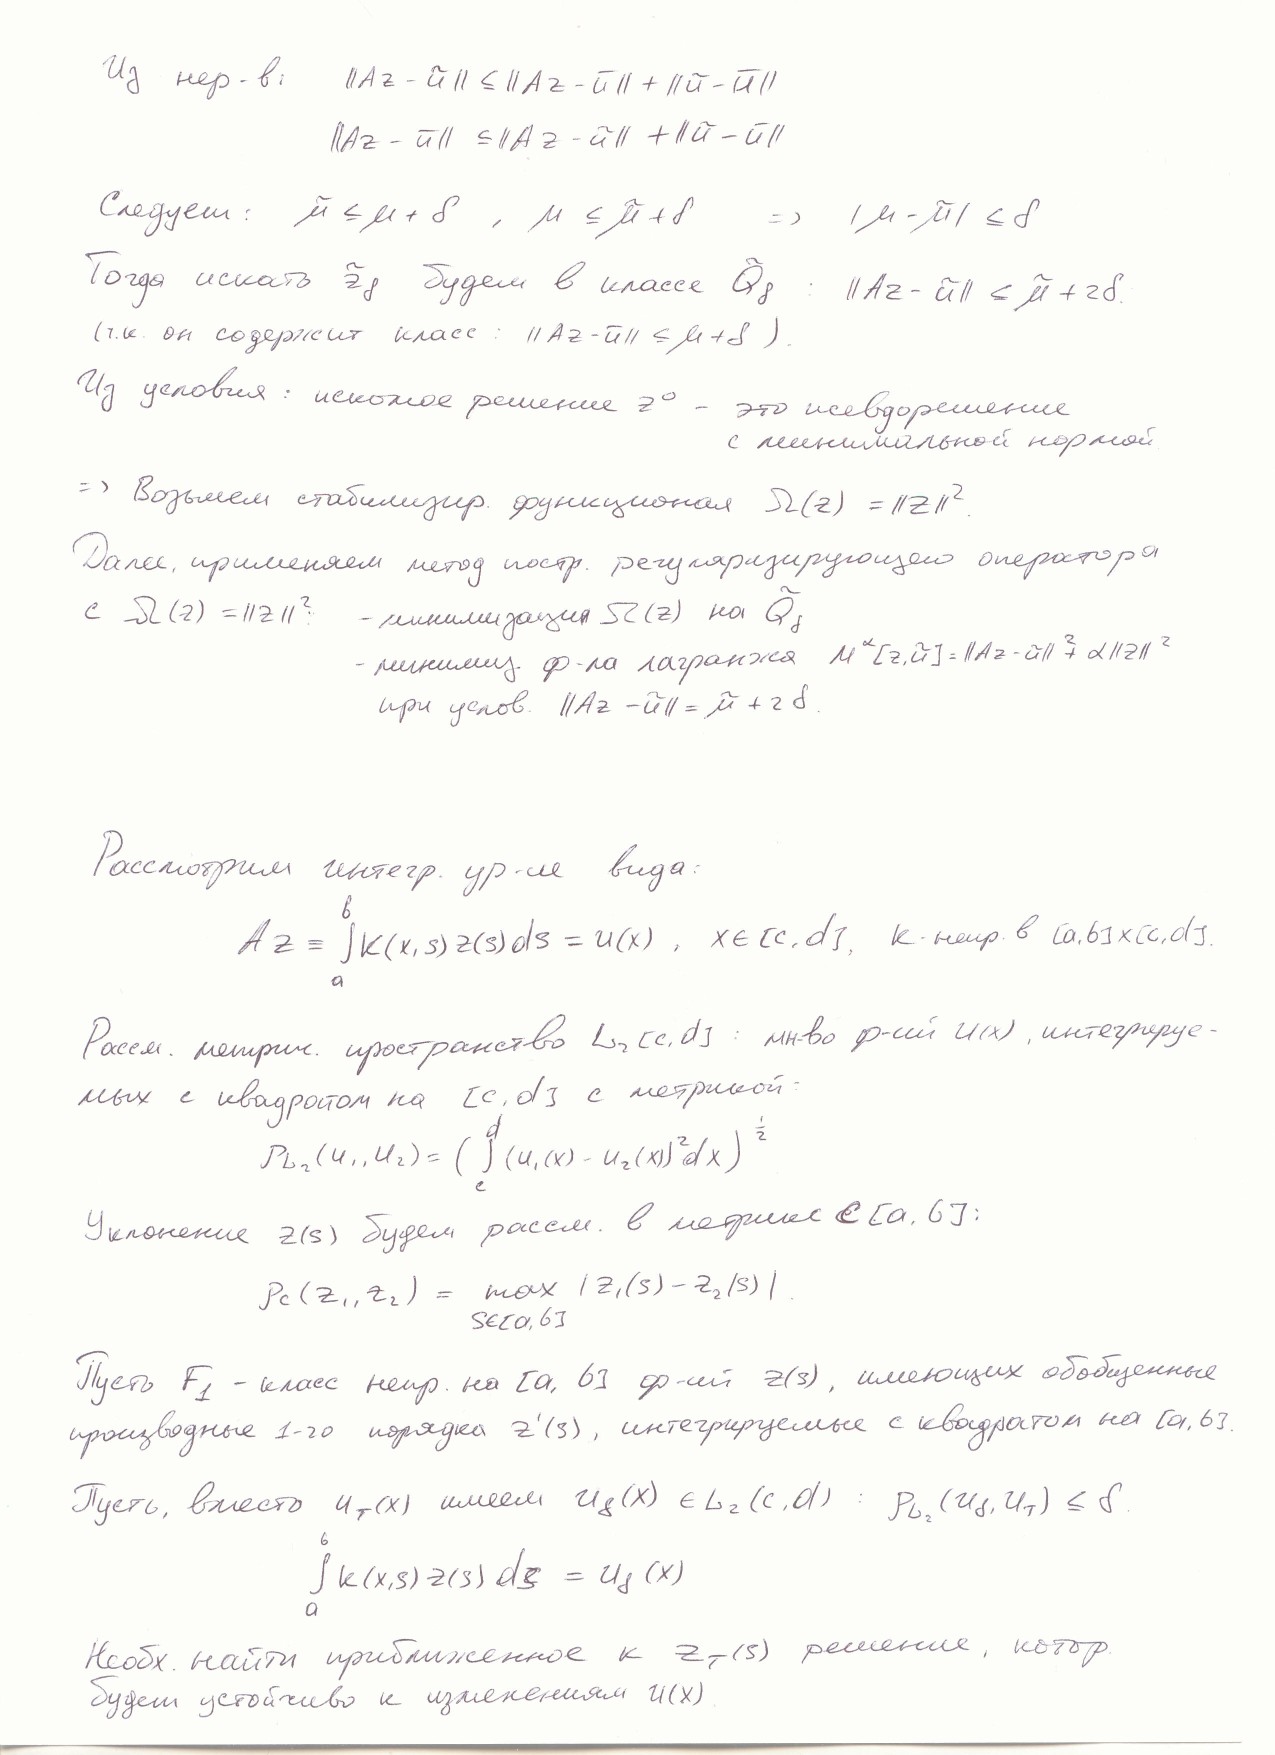 Из нер-в: ||Az - ũ|| ≤ ||Az - ū|| + ||ũ - ū||
||Az - ū|| ≤ ||Az - ũ|| + ||ũ - ū||
Следует: μ̃ ≤ μ + δ , μ ≤ μ̃ + δ => |μ - μ̃| ≤ δ
Тогда искать z̃δ будем в классе Q̃δ : ||Az - ũ|| ≤ μ̃ + 2δ.
(т.к. он содержит класс: ||Az - ũ|| ≤ μ + δ).
Из условия: искомое решение z⁰ - это псевдорешение
с минимальной нормой
=> Возьмем стабилизир. функционал Ω(z) = ||z||².
Далее, применяем метод постр. регуляризирующего оператора
с Ω(z) = ||z||²: - минимизация Ω(z) на Q̃δ
- минимиз. ф-ла лагранжа M^α[z,ũ] = ||Az - ũ||² + α||z||²
при услов. ||Az - ũ|| = μ̃ + 2δ.
Рассмотрим интегр. ур-ие вида:
Az ≡ ∫ₐᵇ K(x,s) z(s) ds = u(x) , x∈[c,d], K - непр. в [a,b]x[c,d].
Рассм. метрич. пространство L₂[c,d] : мн-во ф-ий u(x), интегрируе-
мых с квадратом на [c,d] с метрикой:
ρL₂(u₁,u₂) = (∫_c^d (u₁(x) - u₂(x))² dx)^½
Уклонение z(s) будем рассм. в метрике C[a,b]:
ρc(z₁,z₂) = max |z₁(s) - z₂(s)|.
s∈[a,b]
Пусть F₁ - класс непр. на [a,b] ф-ий z(s), имеющих обобщенные
производные 1-го порядка z'(s), интегрируемые с квадратом на [a,b].
Пусть, вместо u_T(x) имеем uδ(x) ∈ L₂(c,d) : ρL₂(uδ,u_T) ≤ δ.
∫ₐᵇ K(x,s) z(s) ds = uδ(x)
Необх. найти приближенное к z_T(s) решение, котор.
будет устойчиво к изменениям u(x)